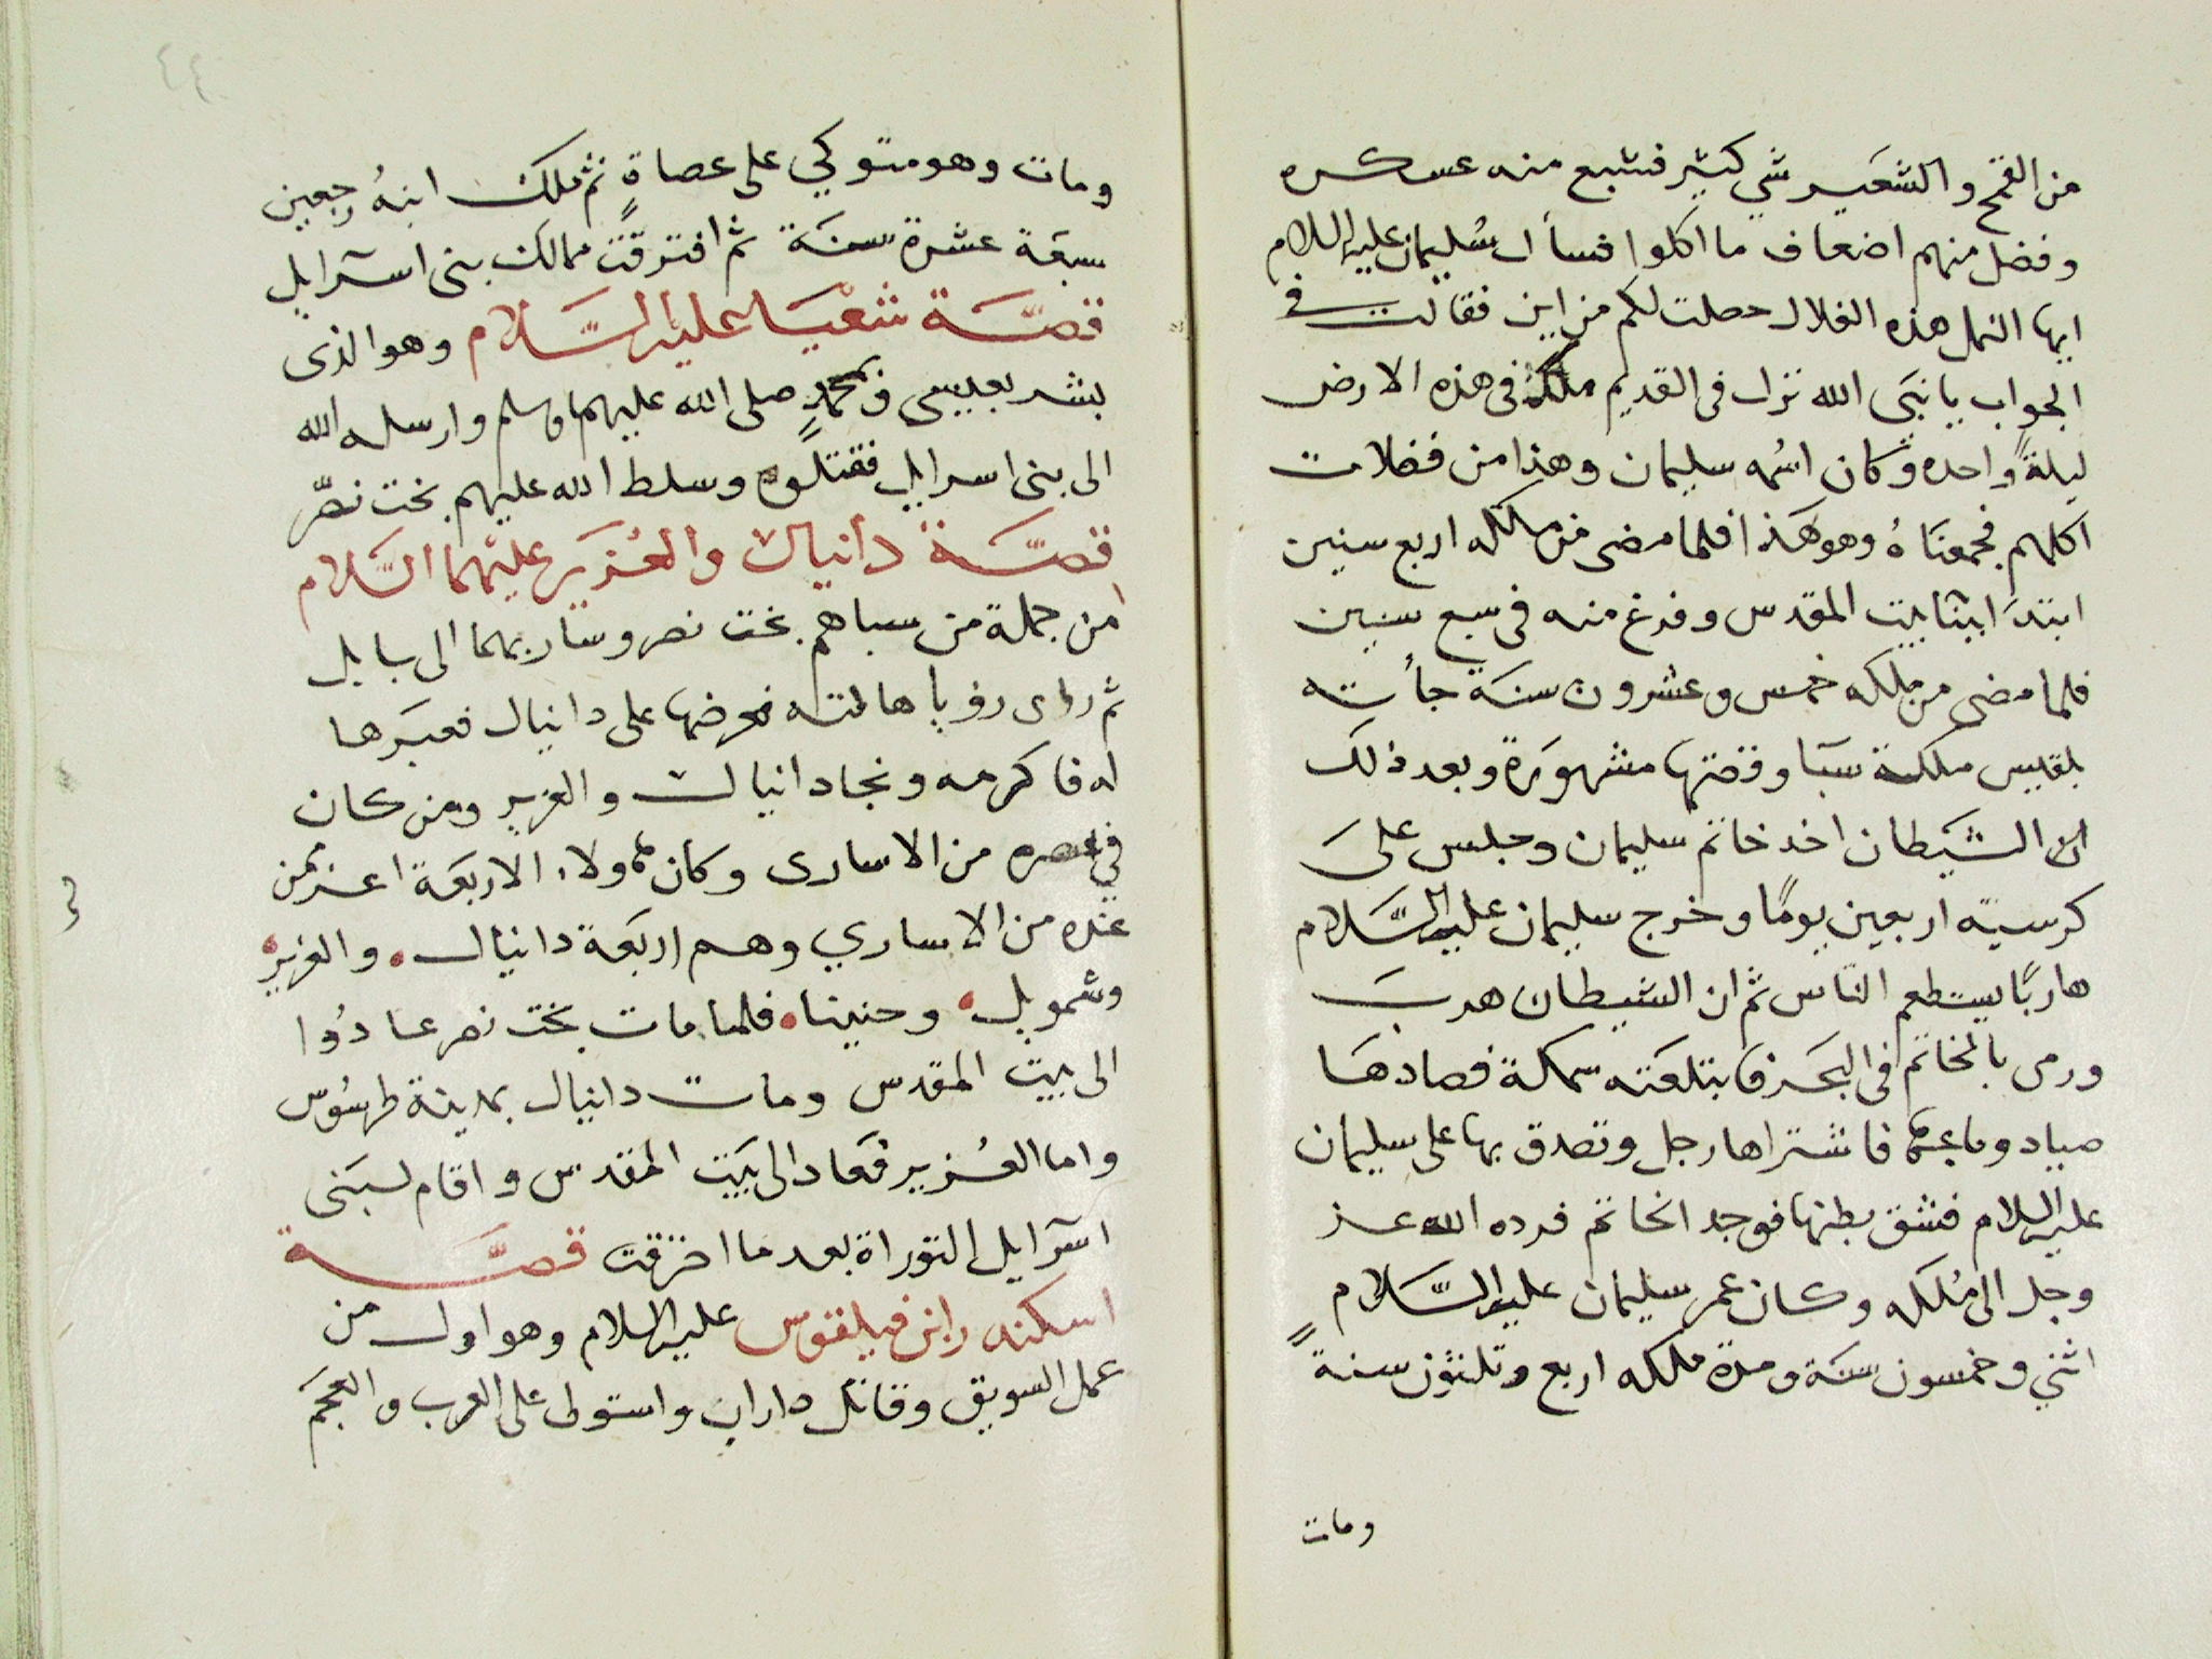 من القمح والشعير شي كثير فشبع منه عسكره
وفضل منهم اضعاف ما اكلوا فسأل سُليمان عليه السلام
ايها النمل هذه الغلال حصلت لكم من اين فقالت في
الجواب يا نبيَ الله نزل في القديم ملكٌ في هذه الارض
ليلةً واحده وكان اسُمه سليمان وهذا من فضلات
اكلهم فجمعنَاهُ وهو هَذا فلما مضى من ملكه اربع سنين
ابتدَا ابينا بيت المقدس وفرغ منه في سبع سنين
فلما مضى من ملكه خمس وعشرون سنَة جأته
بلقيس ملكة سبَا وقصتها مشهورَة وبعد ذلكَ
ان الشيَطان اخد خاتم سليمان وجلس علىَ
كرسيه اربعين يومًا وخرج سليمان عليه السَّلام
هاربًا يستطعم الناس ثم ان الشيطان هربَ
ورمى بالخاتم في البحَر فابتلعَته سمكة فصادهَا
صياد وباعها فاشتراها رجل وتصدق بها على سليمان
عليه السلام فشق بطنها فوجد الخاتم فرده الله عز
وجل الى مُلكَه وكان عمر سليمان عليه السَّلام
اثني وخمسون سنَة ومدة ملكه اربع وتلثون سنةً
ومات
٤٤
ومات وهو متوكي على عصاةٍ ثم ملك ابنهُ رجعين
سبعَة عشرة سنَة ثم افترقت ممالك بنى اسرايل
قصَّة شعْيَا عليه السَّلام وهو الذى
بشر بعيسى ومحمدٍ صلى الله عليهما وسلم وارسله الله
الى بنى اسرايل فقتلوه وسلط الله عليهم بخت نصّر
قصَّة دانيال والعُزَير عليْهما السَّلام
من جملة من سباهم بخت نصر وسار بهما الى بابل
ثم رواى رؤيا هالته فعرضها على دانيال فعبَرها
له فاكرمه ونجا دانيال والعزير ومن كان
في عصره من الاسارى وكان هاولاء الاربعَة اعز من
عنده من الاساري وهم اربَعة دانيال. والعزير.
وشمويل. وحنينا. فلما مات بخت نصر عادُوا
الى بيت المقدس ومات دانيال بمدينة طرسُوس
واما العُزير فعَاد الى بَيت المقدس واقام لبَنى
اسرايل التوراة بعد ما احترقت قصَّة
اسكندر ابن فيلقوس عليه السلام وهو اول من
عمل السويق وقاتل داران واستولى على العرب والعجَم